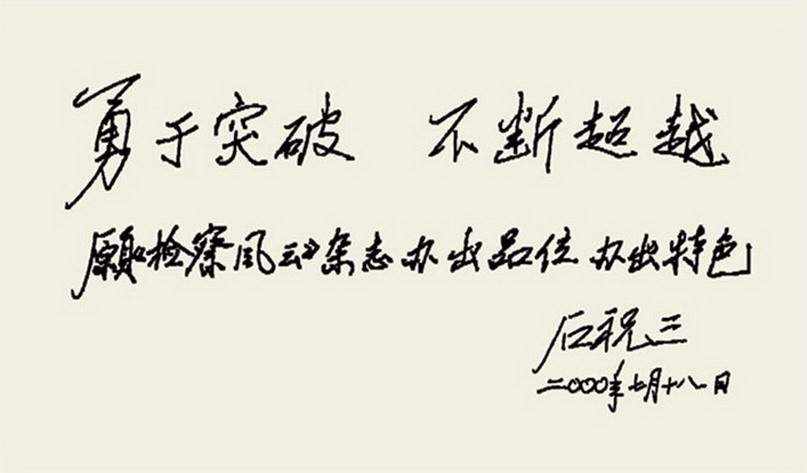 勇于突破 不断超越
愿《检察风云》杂志办出品位 办出特色
石祝三
二〇〇〇年七月十八日